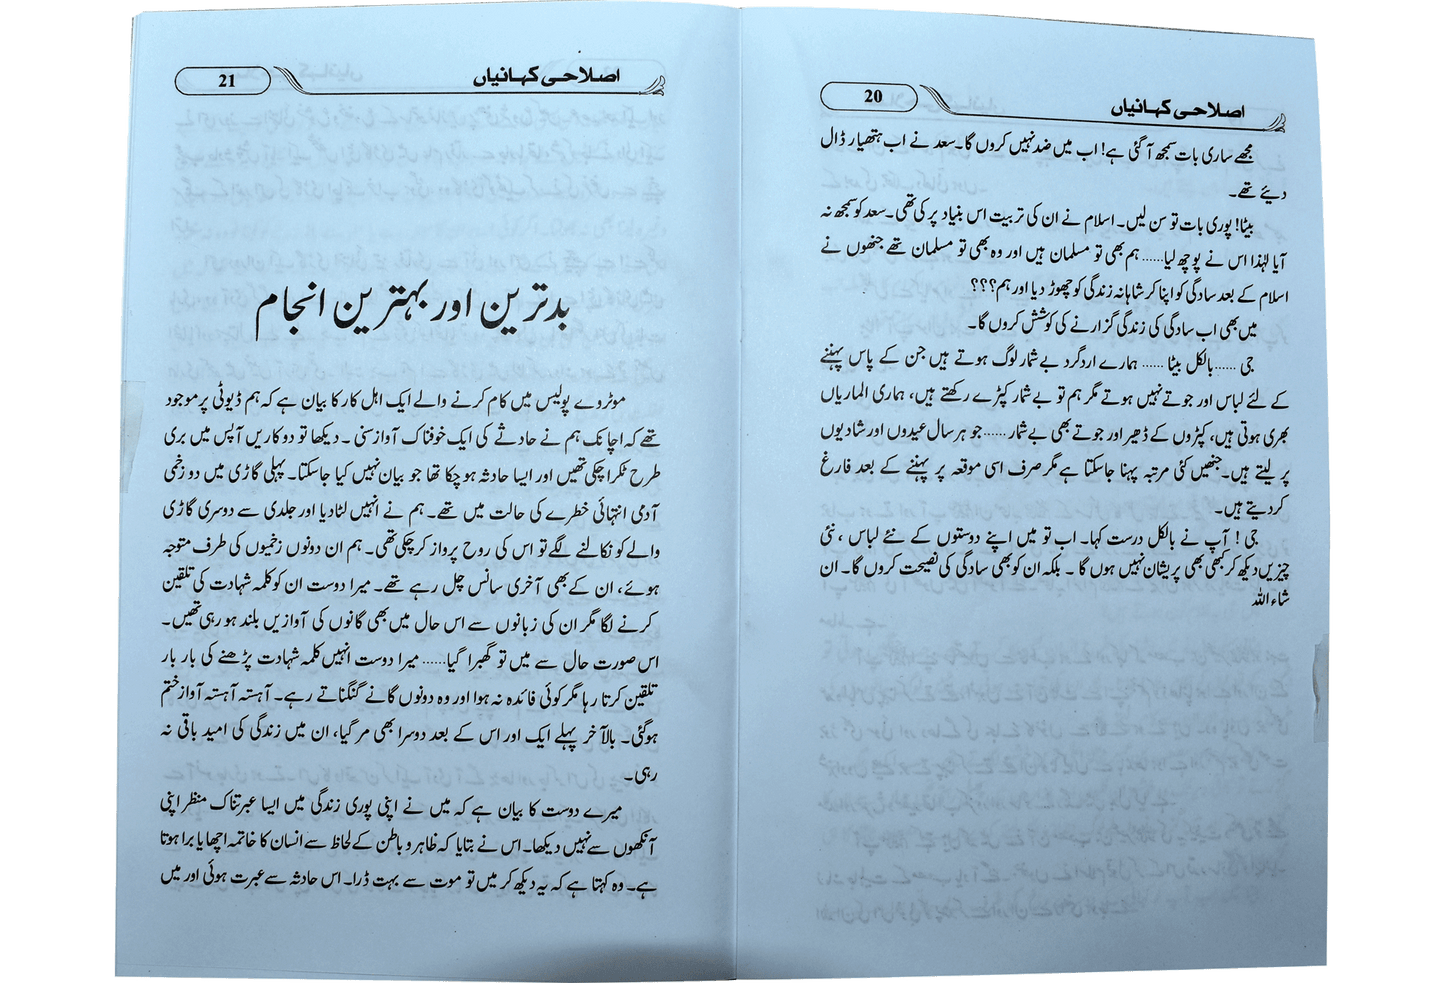 اصلاحی کہانیاں
20
مجھے ساری بات سمجھ آگئی ہے! اب میں ضد نہیں کروں گا۔ سعد نے اب ہتھیار ڈال
دیئے تھے۔
بیٹا! پوری بات تو سن لیں۔ اسلام نے ان کی تربیت اس بنیاد پر کی تھی۔ سعد کو سمجھ نہ
آیا لہٰذا اس نے پوچھ لیا...... ہم بھی تو مسلمان ہیں اور وہ بھی تو مسلمان تھے جنھوں نے
اسلام کے بعد سادگی کو اپنا کر شاہانہ زندگی کو چھوڑ دیا اور ہم؟؟؟
میں بھی اب سادگی کی زندگی گزارنے کی کوشش کروں گا۔
جی ...... بالکل بیٹا ...... ہمارے اردگرد بے شمار لوگ ہوتے ہیں جن کے پاس پہننے
کے لئے لباس اور جوتے نہیں ہوتے مگر ہم تو بے شمار کپڑے رکھتے ہیں، ہماری الماریاں
بھری ہوتی ہیں، کپڑوں کے ڈھیر اور جوتے بھی بے شمار ...... جو ہر سال عیدوں اور شادیوں
پر لیتے ہیں۔ جنھیں کئی مرتبہ پہنا جاسکتا ہے مگر صرف اسی موقعہ پر پہننے کے بعد فارغ
کر دیتے ہیں۔
جی ! آپ نے بالکل درست کہا۔ اب تو میں اپنے دوستوں کے نئے لباس ، نئی
چیزیں دیکھ کر کبھی بھی پریشان نہیں ہوں گا ۔ بلکہ ان کو بھی سادگی کی نصیحت کروں گا۔ ان
شاء اللہ
اصلاحی کہانیاں
21
بدترین اور بہترین انجام
موٹروے پولیس میں کام کرنے والے ایک اہل کار کا بیان ہے کہ ہم ڈیوٹی پر موجود
تھے کہ اچانک ہم نے حادثے کی ایک خوفناک آواز سنی ۔ دیکھا تو دو کاریں آپس میں بری
طرح ٹکرا چکی تھیں اور ایسا حادثہ ہو چکا تھا جو بیان نہیں کیا جاسکتا۔ پہلی گاڑی میں دو زخمی
آدمی انتہائی خطرے کی حالت میں تھے۔ ہم نے انہیں لٹا دیا اور جلدی سے دوسری گاڑی
والے کو نکالنے لگے تو اس کی روح پرواز کر چکی تھی۔ ہم ان دونوں زخمیوں کی طرف متوجہ
ہوئے، ان کے بھی آخری سانس چل رہے تھے۔ میرا دوست ان کو کلمہ شہادت کی تلقین
کرنے لگا مگر ان کی زبانوں سے اس حال میں بھی گانوں کی آوازیں بلند ہو رہی تھیں۔
اس صورت حال سے میں تو گھبرا گیا...... میرا دوست انہیں کلمہ شہادت پڑھنے کی بار بار
تلقین کرتا رہا مگر کوئی فائدہ نہ ہوا اور وہ دونوں گانے گنگناتے رہے۔ آہستہ آہستہ آواز ختم
ہوگئی۔ بالآخر پہلے ایک اور اس کے بعد دوسرا بھی مر گیا، ان میں زندگی کی امید باقی نہ
رہی۔
میرے دوست کا بیان ہے کہ میں نے اپنی پوری زندگی میں ایسا عبرتناک منظر اپنی
آنکھوں سے نہیں دیکھا۔ اس نے بتایا کہ ظاہر و باطن کے لحاظ سے انسان کا خاتمہ اچھا یا برا ہوتا
ہے۔ وہ کہتا ہے کہ یہ دیکھ کر میں تو موت سے بہت ڈرا۔ اس حادثہ سے عبرت ہوئی اور میں